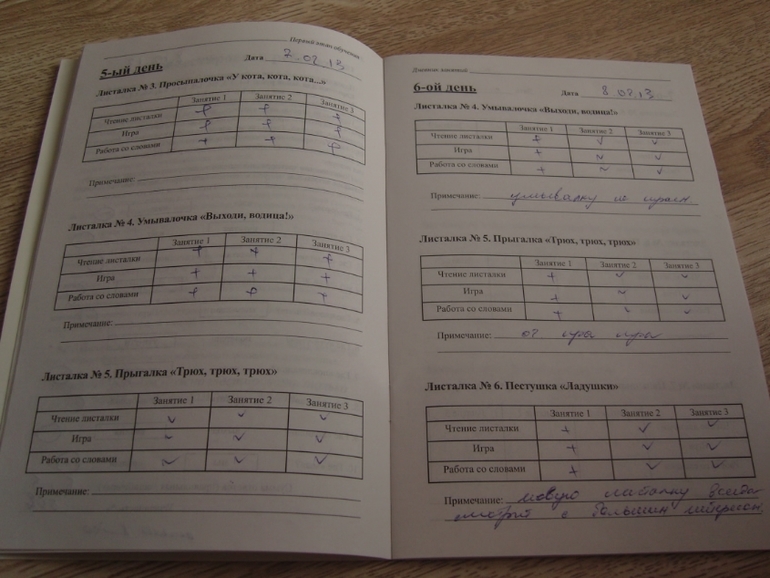 Первый месяц обучения
5-ый день Дата 7 02 13
Листалка № 3. Просыпалочка «У кота, кота, кота...»
Занятие 1 Занятие 2 Занятие 3
Чтение листалки + + +
Игра + + +
Работа со словами + + +
Примечание:
Листалка № 4. Умывалочка «Выходи, водица!»
Занятие 1 Занятие 2 Занятие 3
Чтение листалки + + +
Игра + + +
Работа со словами + + +
Примечание:
Листалка № 5. Прыгалка «Трюх, трюх, трюх»
Занятие 1 Занятие 2 Занятие 3
Чтение листалки ✓ ✓ ✓
Игра ~ ✓ ✓
Работа со словами ~ ✓ ✓
Примечание:
Дневник занятий
6-ой день Дата 8 02 13
Листалка № 4. Умывалочка «Выходи, водица!»
Занятие 1 Занятие 2 Занятие 3
Чтение листалки + ✓ ✓
Игра + ~ ✓
Работа со словами + ~ ✓
Примечание: умывалку не
Листалка № 5. Прыгалка «Трюх, трюх, трюх»
Занятие 1 Занятие 2 Занятие 3
Чтение листалки + ✓ ✓
Игра + ~ ✓
Работа со словами + ✓ ✓
Примечание:
Листалка № 6. Пестушка «Ладушки»
Занятие 1 Занятие 2 Занятие 3
Чтение листалки + ✓ ✓
Игра + ✓ ✓
Работа со словами + ✓ ✓
Примечание: новую всегда
смотрит с большим интересом